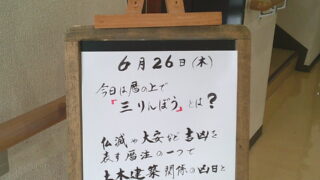 6月26日(木)
今日は暦の上で
「三りんぼう」とは?
仏滅や大安など吉凶を
表す暦法の一つで
土木建築関係の凶日と